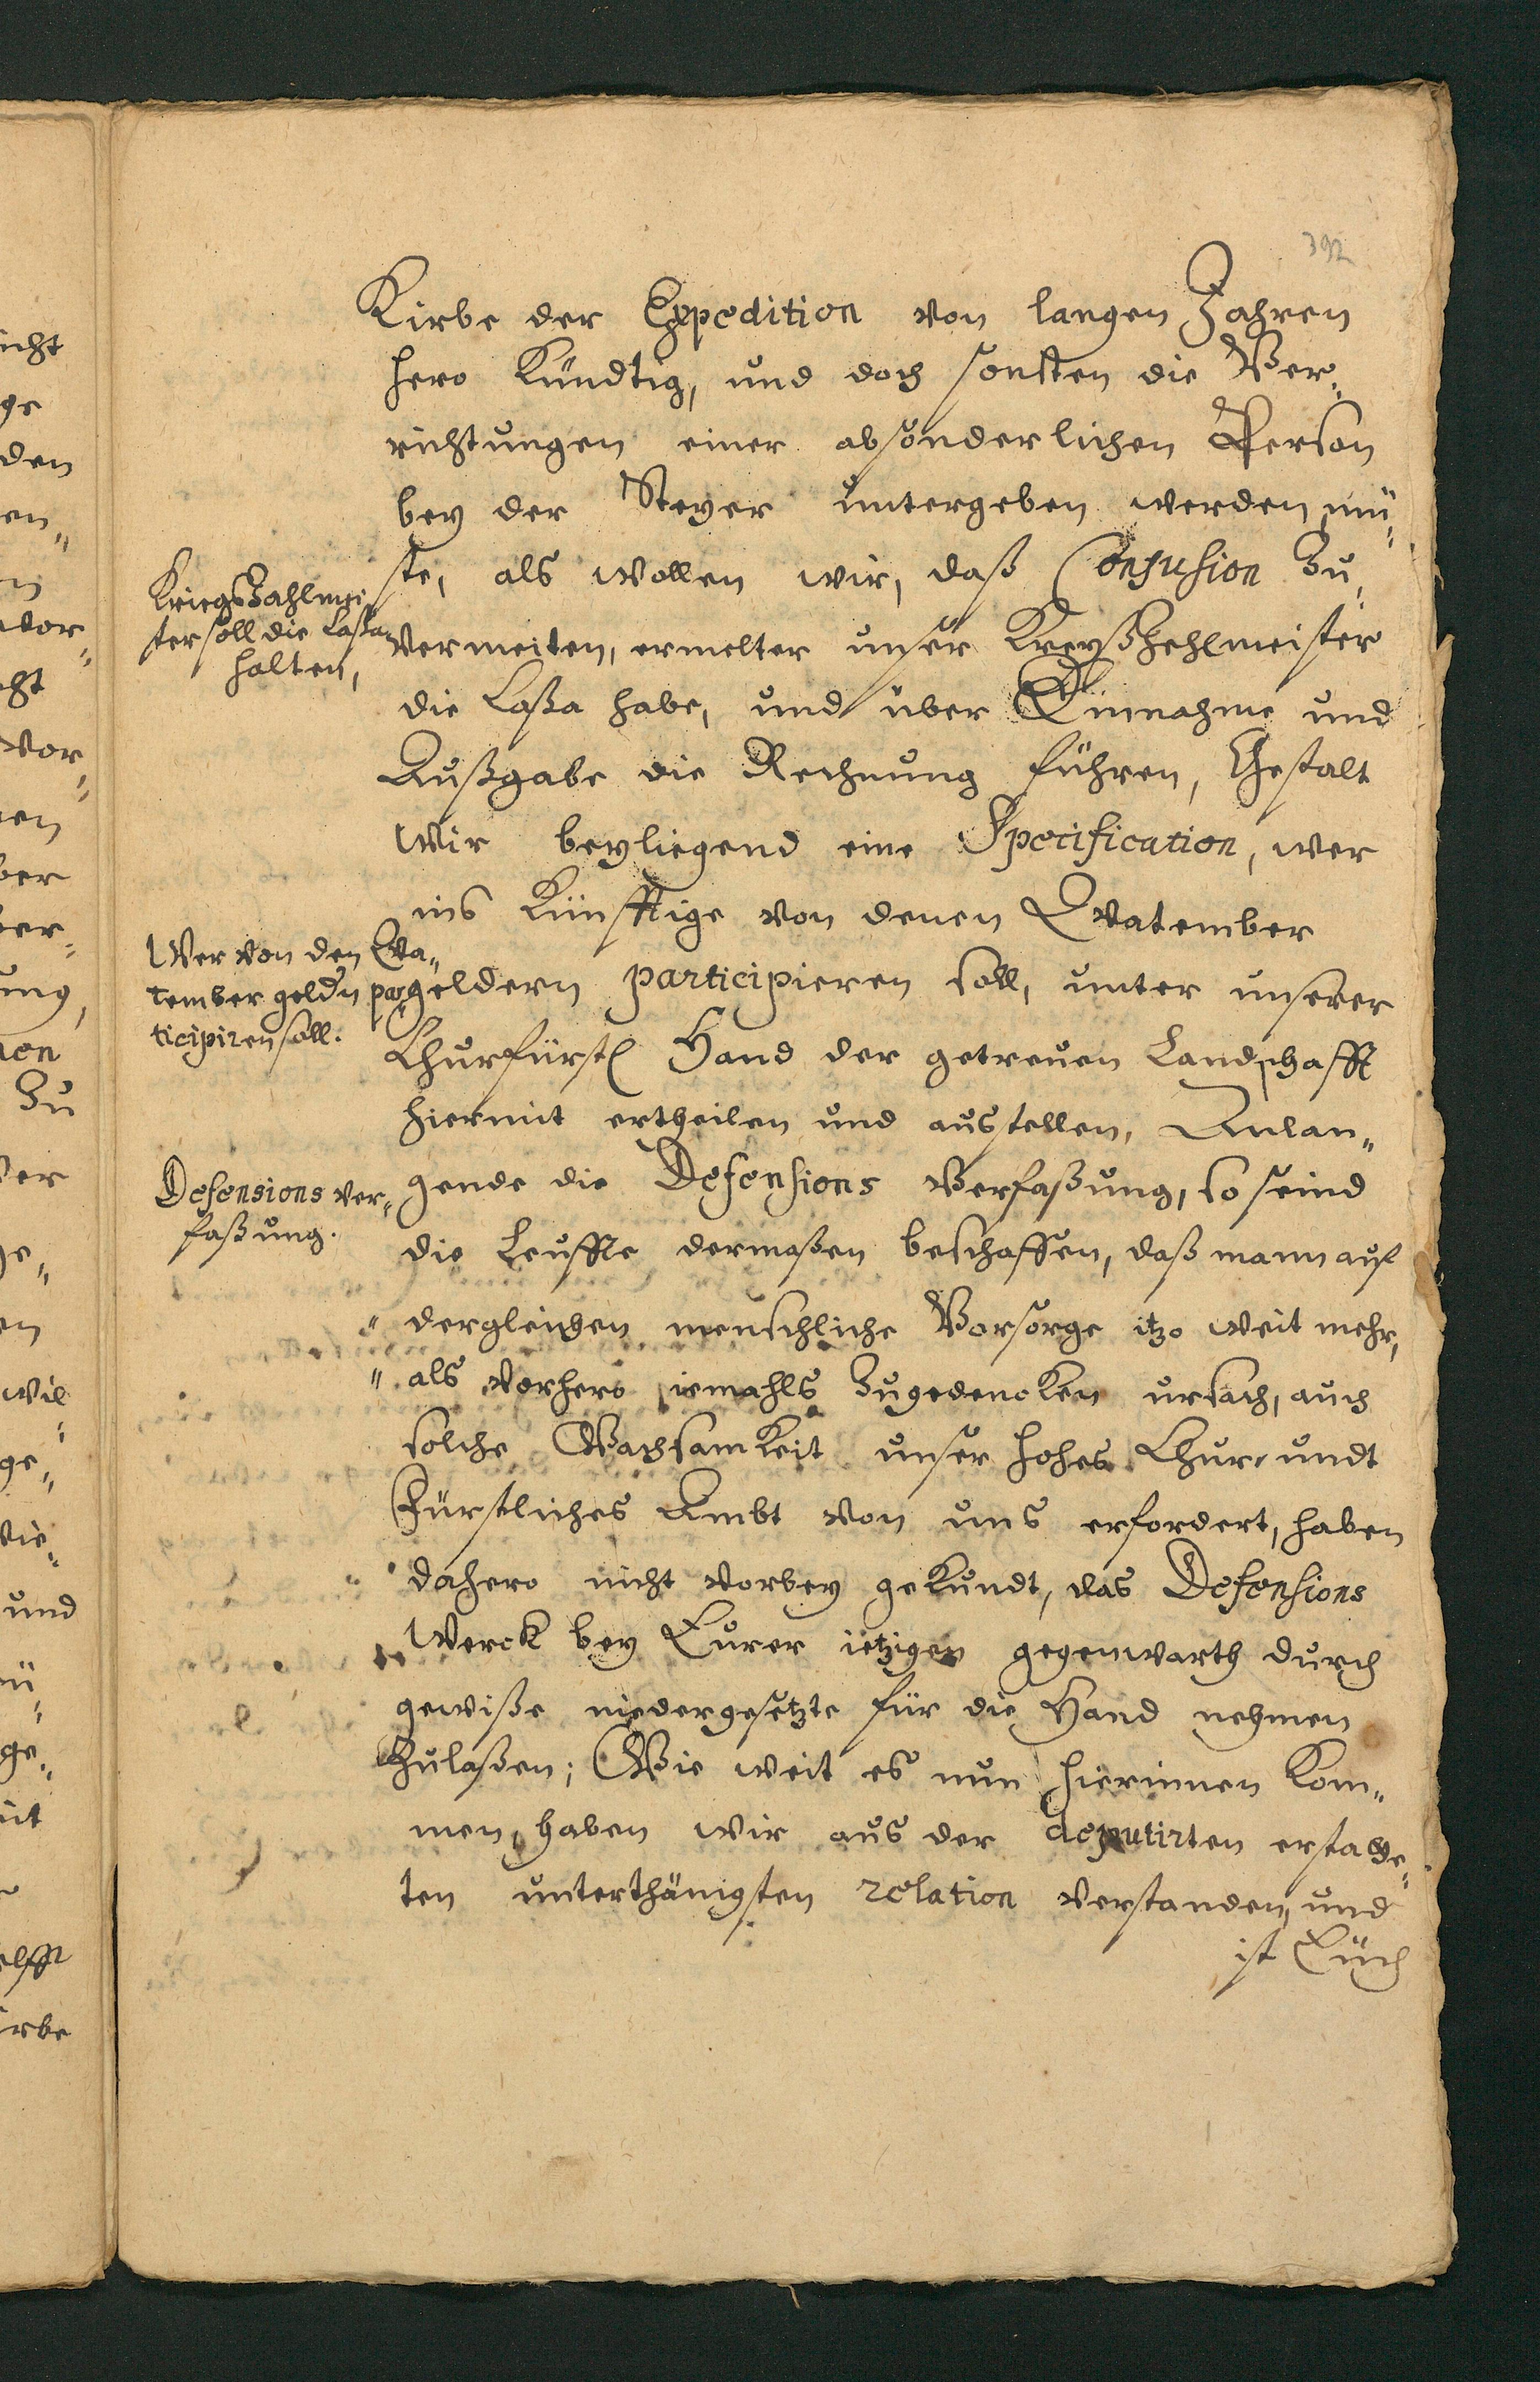 392
Kirbe der Expedition von langen Jahren
hero kündtig, und doch sonsten die Ver-
richtungen einer absonderlichen Person
bey der Steyer untergeben werden mü-
ste, als wollen wir, daß Confusion zu
vermeiten, ermelter unser Kreyßzehlmeister
die Cassa habe, und über Einnahme und
Außgabe die Rechnung führen, Gestalt
wir beyliegend eine Specification, wer
ins künfftige von denen Qvatember
geldern participieren soll, unter unserer
Churfürstl Hand der getreuen Landschafft
hiermit ertheilen und austellen, Anlan-
gende die Defensions Verfaßung, so seind
die Leuffte dermaßen beschaffen, daß mann auf
" dergleichen menschliche Vorsorge itzo weit mehr,
" als vorhero iemahls zugedencken ursach, auch
solche Wachsamkeit unser hohes Chur- undt
Fürstliches Ambt von uns erfordert, haben
dahero nicht vorbey gekundt, das Defensions
Werck bey Eurer ietzigen gegenwarth durch
gewiße niedergesetzte für die Hand nehmen
zulaßen; Wie weit es nun hierinnen kom-
men, haben wir aus der deputirten erstatte-
ten unterthänigsten relation verstanden, und
ist Euch
KriegsZahlmei
ster soll die Cassa
halten,
Wer von den Qva-
tember geldn par
ticipiren soll.
Defensions ver-
faßung.